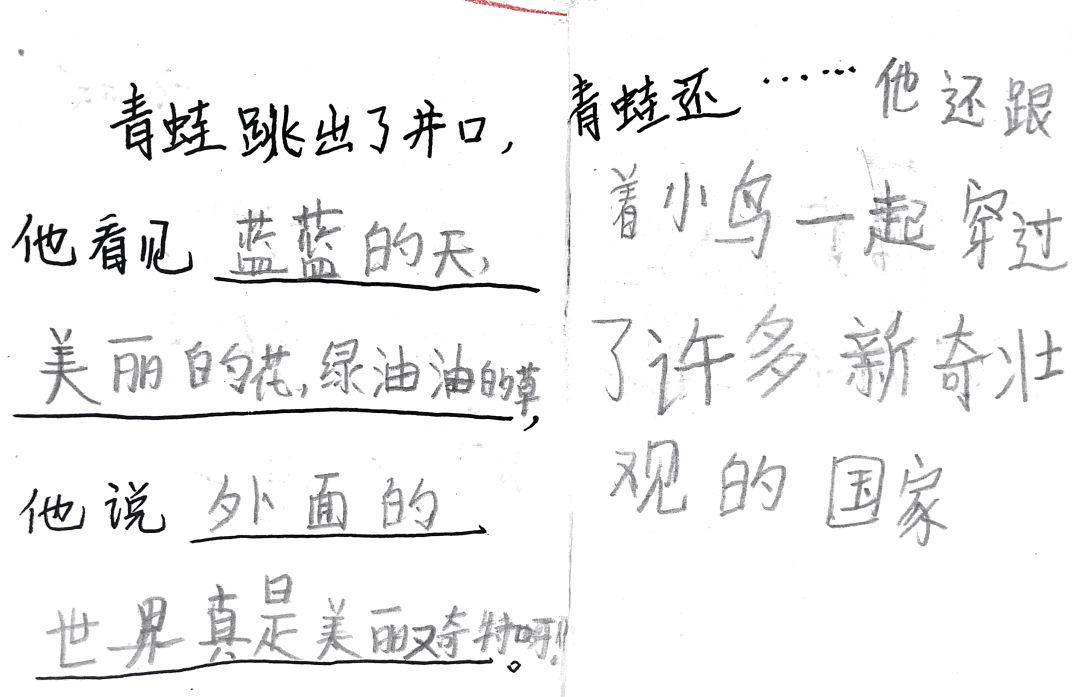 青蛙跳出了井口，
他看见蓝蓝的天，
美丽的花，绿油油的草，
他说外面的
世界真是美丽又奇特呀！。
青蛙还……他还跟
着小鸟一起穿过
了许多新奇壮
观的国家